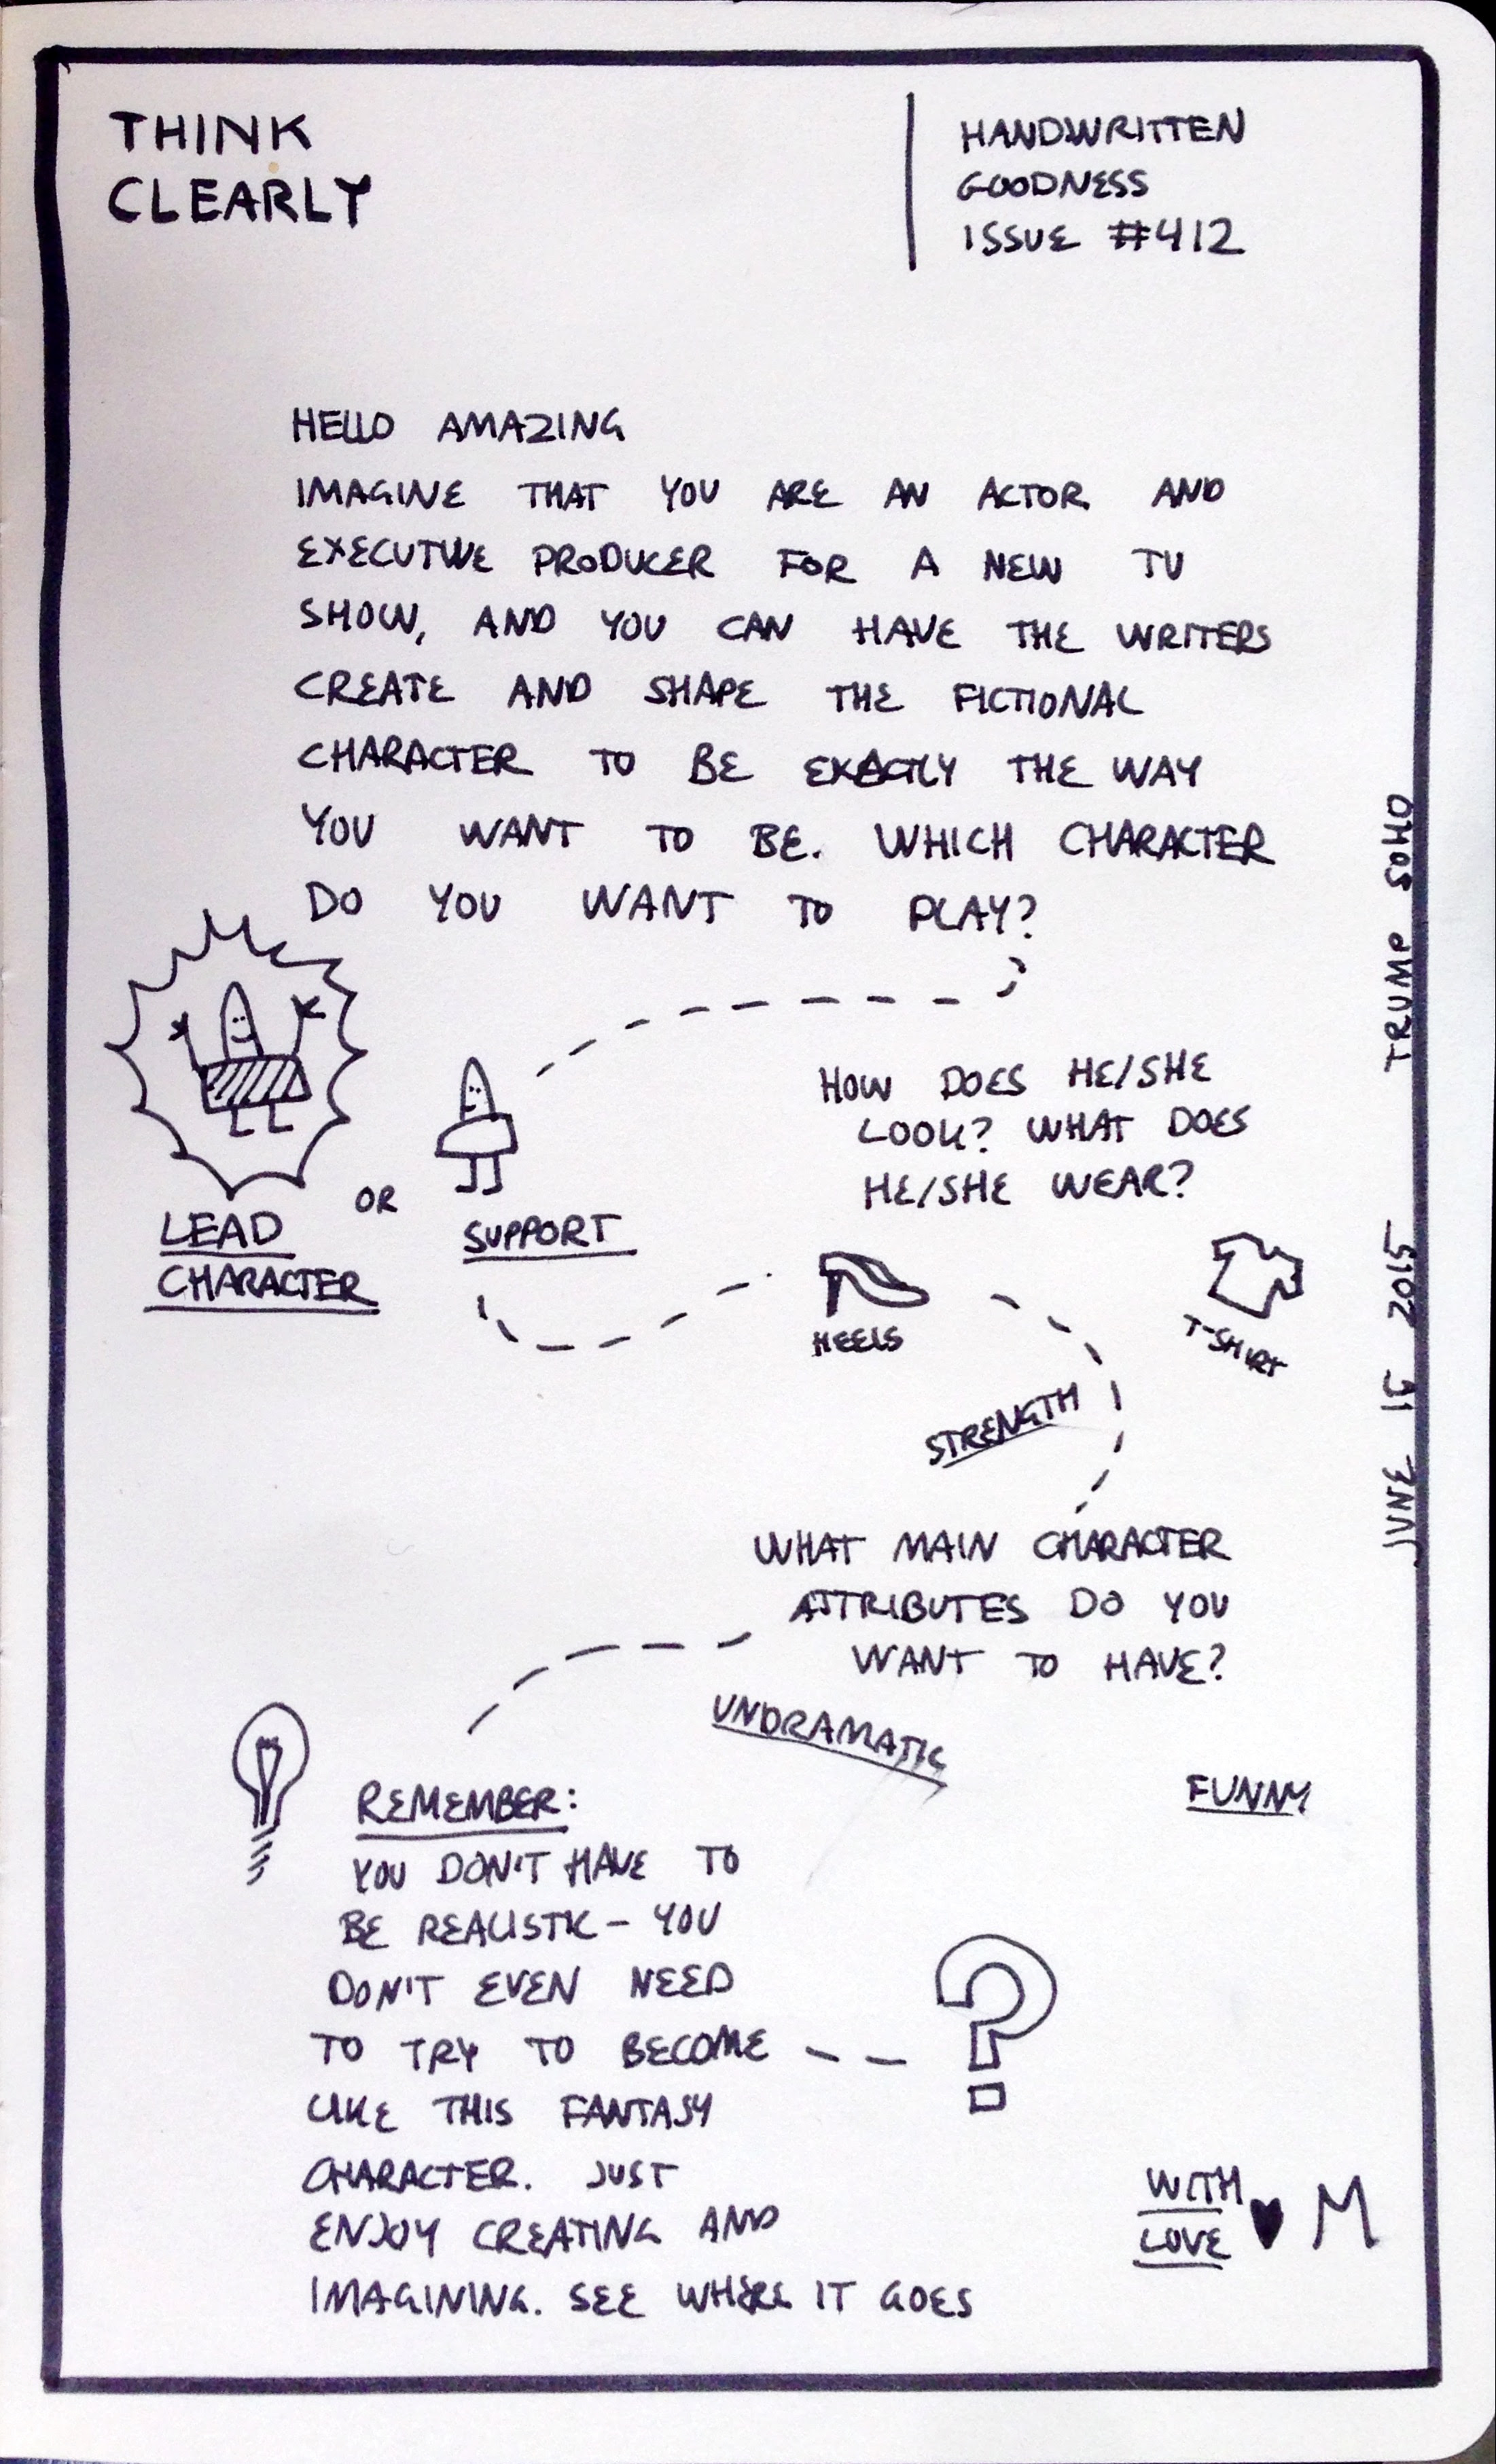 THINK
CLEARLY
HANDWRITTEN
GOODNESS
ISSUE #412
HELLO AMAZING
IMAGINE THAT YOU ARE AN ACTOR AND
EXECUTIVE PRODUCER FOR A NEW TV
SHOW, AND YOU CAN HAVE THE WRITERS
CREATE AND SHAPE THE FICTIONAL
CHARACTER TO BE EXACTLY THE WAY
YOU WANT TO BE. WHICH CHARACTER
DO YOU WANT TO PLAY?
LEAD
CHARACTER
OR
SUPPORT
HOW DOES HE/SHE
LOOK? WHAT DOES
HE/SHE WEAR?
HEELS
T-SHIRT
STRENGTH
WHAT MAIN CHARACTER
ATTRIBUTES DO YOU
WANT TO HAVE?
UNDRAMATIC
FUNNY
REMEMBER:
YOU DON'T HAVE TO
BE REALISTIC - YOU
DON'T EVEN NEED
TO TRY TO BECOME
LIKE THIS FANTASY
CHARACTER. JUST
ENJOY CREATING AND
IMAGINING. SEE WHERE IT GOES
?
WITH
LOVE ♥ M
JUNE 2015 TRUMP SOHO